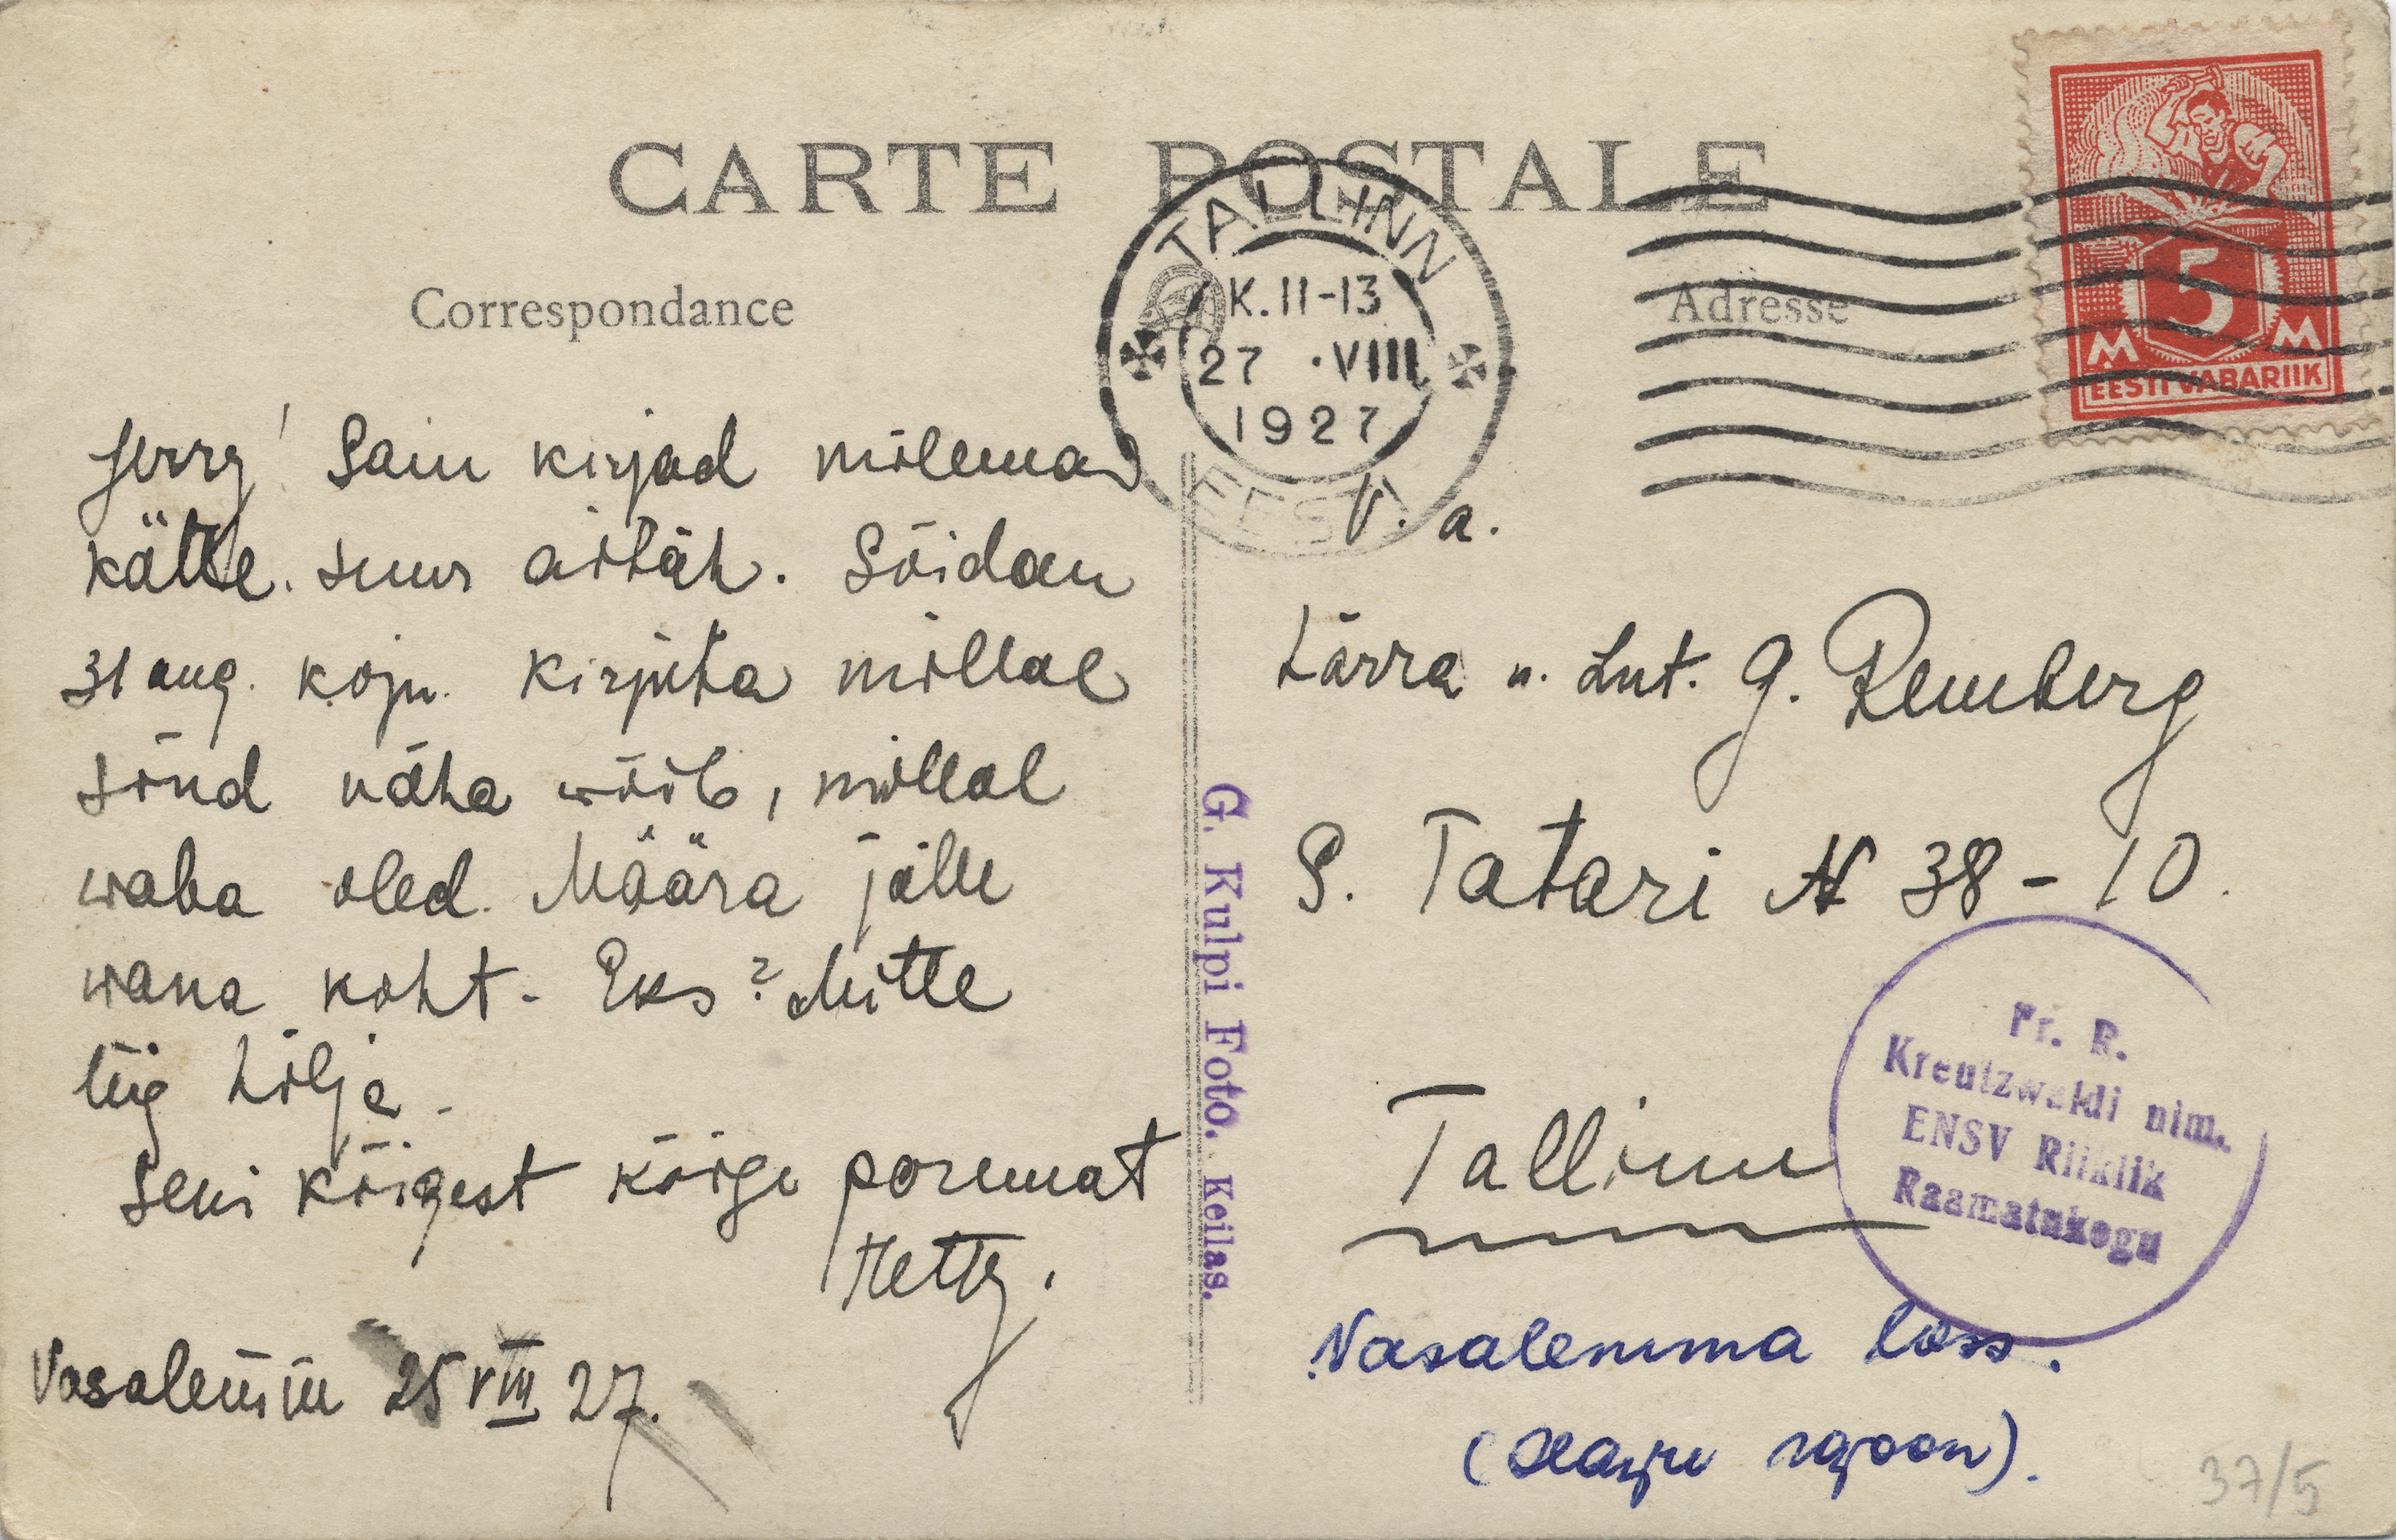 CARTE POSTALE
Correspondance
Adresse
TALLINN
K. 11-13
27 .VIII
1927
EESTI
5
M M
EESTI VABARIIK
Jerry! Sain kirjad mõlemad
kätte. Suur aitäh. Sõidan
31 aug. koju. Kirjuta millal
sind näha wõib, millal
waba oled. Määra jälle
wana koht. Eks? Mitte
liig hilja.
Seni kõigest kõige paremat
Hetty.
Vasalemm 25 VIII 27.
V. a.
Härra n. Lnt. G. Remberg
S. Tatari N 38-10.
Tallinn
G. Kulpi Foto. Keilas.
Fr. R.
Kreutzwaldi nim.
ENSV Riiklik
Raamatukogu
Vasalemma loss.
(Harju rajoon).
37/5